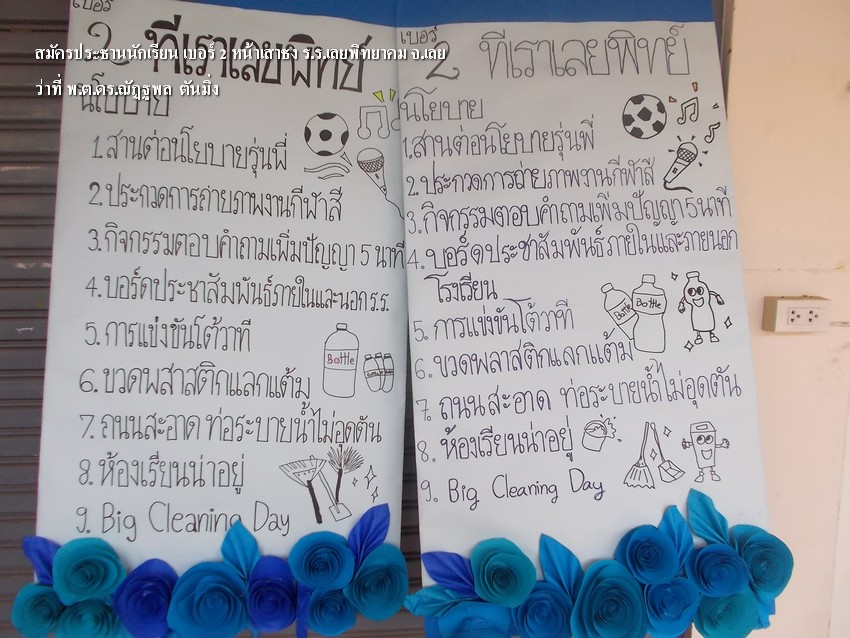 สมัครประธานนักเรียน เบอร์ 2 หน้าเสาธง ร.ร.เลยพิทยาคม จ.เลย
ว่าที่ พ.ต.ดร.ณัฏฐพล ตันมิ่ง
เบอร์
2 ทีเราเลยพิทย์
นโยบาย
1.สานต่อนโยบายรุ่นพี่
2.ประกวดการถ่ายภาพงานกีฬาสี
3.กิจกรรมตอบคำถามเพิ่มปัญญา 5 นาที
4.บอร์ดประชาสัมพันธ์ภายในและนอก ร.ร.
5.การแข่งขันโต้วาที
6.ขวดพลาสติกแลกแต้ม
7.ถนนสะอาด ท่อระบายน้ำไม่อุดตัน
8.ห้องเรียนน่าอยู่
9. Big Cleaning Day
Bottle
เบอร์
2 ทีเราเลยพิทย์
นโยบาย
1.สานต่อนโยบายรุ่นพี่
2.ประกวดการถ่ายภาพงานกีฬาสี
3.กิจกรรมตอบคำถามเพิ่มปัญญา 5 นาที
4.บอร์ดประชาสัมพันธ์ ภายในและภายนอก
โรงเรียน
5. การแข่งขันโต้วาที
6. ขวดพลาสติกแลกแต้ม
7. ถนนสะอาด ท่อระบายน้ำไม่อุดตัน
8. ห้องเรียนน่าอยู่
9. Big Cleaning Day
Bottle
Bottle